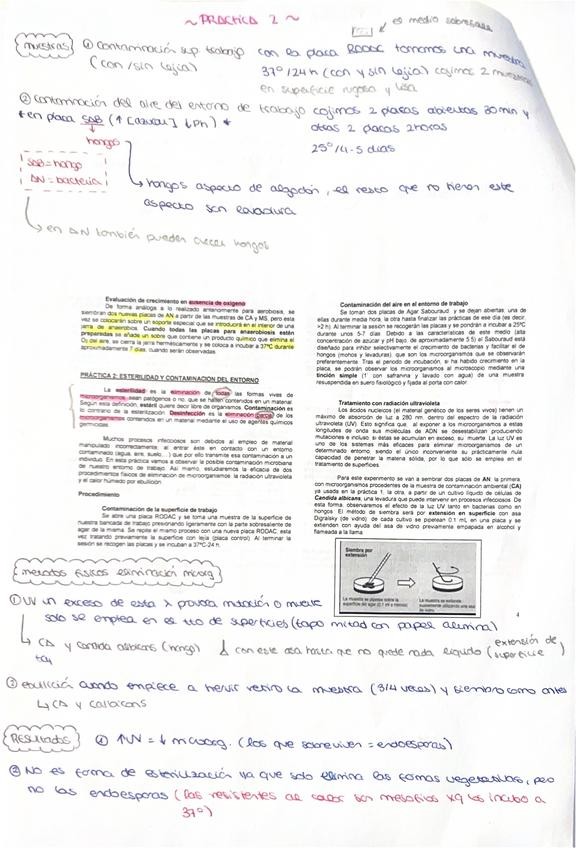 ~ PRÁCTICA 2 ~
el medio sobresale
Muestras ① Contaminación sup. trabajo con la placa RODAC tomamos una muestra
(con/sin lejía) 37º/24h (con y sin lejía) cojimos 2 muestras
en superficie rugosa y lisa
② Contaminación del aire del entorno de trabajo cojimos 2 placas abiertas 30 min y
* en placa SAB (↑ [azúcar] ↓ph) * otras 2 placas 2 horas
hongos 25º/4-5 días
SAB = hongo
AN = bacteria
hongos aspecto de algodón, el resto que no tienen este
aspecto son levadura
en AN también pueden crecer hongos
Evaluación de crecimiento en ausencia de oxígeno
De forma análoga a lo realizado anteriormente para aerobiosis, se
siembran dos nuevas placas de AN a partir de las muestras de CA y MS, pero esta
vez se colocarán sobre un soporte especial que se introducirá en el interior de una
jarra de anaerobios. Cuando todas las placas para anaerobiosis estén
preparadas se añade un sobre que contiene un producto químico que elimina el
O2 del aire, se cierra la jarra herméticamente y se coloca a incubar a 37ºC durante
aproximadamente 7 días, cuando serán observadas.
PRÁCTICA 2: ESTERILIDAD Y CONTAMINACIÓN DEL ENTORNO
La esterilidad es la eliminación de todas las formas vivas de
microorganismos, sean patógenos o no, que se hallen contenidos en un material.
Según esta definición, estéril quiere decir libre de organismos. Contaminación es
lo contrario de la esterilización. Desinfección es la eliminación parcial de los
microorganismos contenidos en un material mediante el uso de agentes químicos
germicidas.
Muchos procesos infecciosos son debidos al empleo de material
manipulado incorrectamente, al entrar éste en contacto con un entorno
contaminado (agua, aire, suelo,...) que por ello transmite esa contaminación a un
individuo. En esta práctica vamos a observar la posible contaminación microbiana
de nuestro entorno de trabajo. Así mismo, estudiaremos la eficacia de dos
procedimientos físicos de eliminación de microorganismos: la radiación ultravioleta
y el calor húmedo por ebullición.
Procedimiento
Contaminación de la superficie de trabajo
Se abre una placa RODAC y se toma una muestra de la superficie de
nuestra bancada de trabajo presionando ligeramente con la parte sobresaliente de
agar de la misma. Se repite el mismo proceso con una nueva placa RODAC, esta
vez tratando previamente la superficie con lejía (placa control). Al terminar la
sesión se recogen las placas y se incuban a 37ºC-24 h.
Contaminación del aire en el entorno de trabajo
Se toman dos placas de Agar Sabouraud y se dejan abiertas, una de
ellas durante media hora, la otra hasta finalizar las prácticas de ese día (es decir,
>2 h). Al terminar la sesión se recogerán las placas y se pondrán a incubar a 25ºC
durante unos 5-7 días. Debido a las características de este medio (alta
concentración de azúcar y pH bajo, de aproximadamente 5.5) el Sabouraud está
diseñado para inhibir selectivamente el crecimiento de bacterias y facilitar el de
hongos (mohos y levaduras), que son los microorganismos que se observarán
preferentemente. Tras el periodo de incubación, si ha habido crecimiento en la
placa, se podrán observar los microorganismos al microscopio mediante una
tinción simple (1' con safranina y lavado con agua) de una muestra
resuspendida en suero fisiológico y fijada al porta con calor.
Tratamiento con radiación ultravioleta
Los ácidos nucleicos (el material genético de los seres vivos) tienen un
máximo de absorción de luz a 280 nm, dentro del espectro de la radiación
ultravioleta (UV). Esto significa que, al exponer a los microorganismos a estas
longitudes de onda sus moléculas de ADN se desestabilizan produciendo
mutaciones e incluso, si éstas se acumulan en exceso, su muerte. La luz UV es
uno de los sistemas más eficaces para eliminar microorganismos de un
determinado entorno, siendo el único inconveniente su prácticamente nula
capacidad de penetrar la materia sólida, por lo que sólo se emplea en el
tratamiento de superficies.
Para este experimento se van a sembrar dos placas de AN: la primera,
con microorganismos procedentes de la muestra de contaminación ambiental (CA)
ya usada en la práctica 1; la otra, a partir de un cultivo líquido de células de
Candida albicans, una levadura que puede intervenir en procesos infecciosos. De
esta forma, observaremos el efecto de la luz UV tanto en bacterias como en
hongos. El método de siembra será por extensión en superficie con asa
Digralsky (de vidrio) de cada cultivo se pipetean 0.1 mL en una placa y se
extienden con ayuda del asa de vidrio previamente empapada en alcohol y
flameada a la llama.
Siembra por
extensión
4
Métodos físicos eliminación microorg
① UV un exceso de esta λ provoca mutación o muerte
solo se emplea en el tto de superficies (tapo mitad con papel alumina)
CA y candida albicans (hongo) con este asa hasta que no quede nada líquido (extensión de superficie)
② ebullición cuando empiece a hervir retiro la muestra (3/4 veces) y siembro como antes
CA y c. albicans
Resultados ① ↑UV = ↓ microorg. (los que sobreviven = endoesporas)
② No es forma de esterilización ya que solo elimina las formas vegetativas, pero
no las endoesporas (las resistentes al calor son mesófilos xq los incubo a
37º)